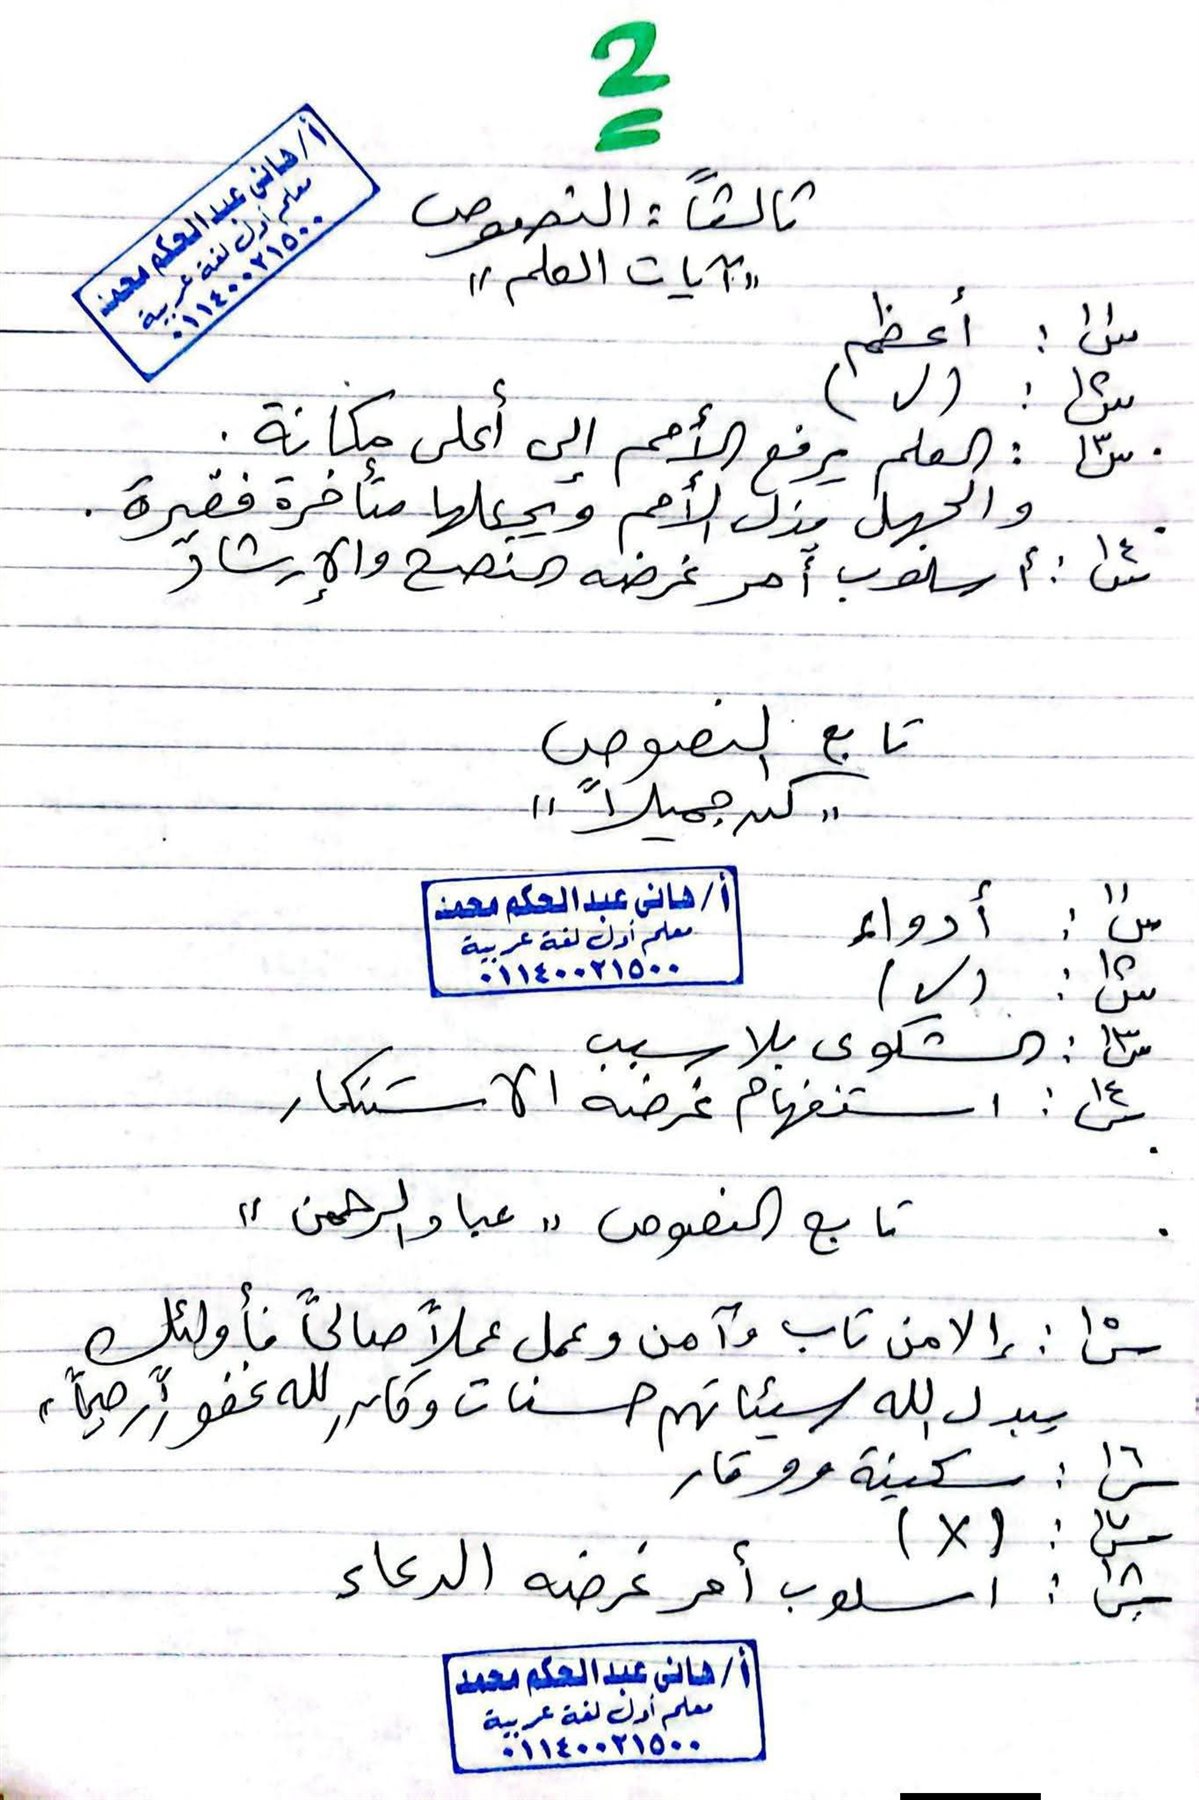 2
أ/هاني عبدالحكم محمد
معلم أول لغة عربية
٠١١٤٠٠٢١٥٠٠
ثالثاً : النصوص
"آيات العلم"
س١١ : أعظم
س١٢ : (✓)
س١٣ : العلم يرفع الأمم إلى أعلى مكانة .
والجهل يذل الأمم ويجعلها متأخرة فقيرة .
س١٤ : أسلوب أمر غرضه النصح والإرشاد
تابع النصوص
"كن جميلاً"
أ/هاني عبدالحكم محمد
معلم أول لغة عربية
٠١١٤٠٠٢١٥٠٠
س١١ : أدواء
س١٢ : (✓)
س١٣ : الشكوى بلا سبب
س١٤ : استفهام غرضه الاستنكار
تابع النصوص "عباد الرحمن"
س١٥ : إلا من تاب وآمن وعمل عملاً صالحاً فأولئك
يبدل الله سيئاتهم حسنات وكان الله غفوراً رحيماً"
س١٦ : سكينة ووقار
س١٧ : (X)
س١٨ : اسلوب أمر غرضه الدعاء
أ/هاني عبدالحكم محمد
معلم أول لغة عربية
٠١١٤٠٠٢١٥٠٠